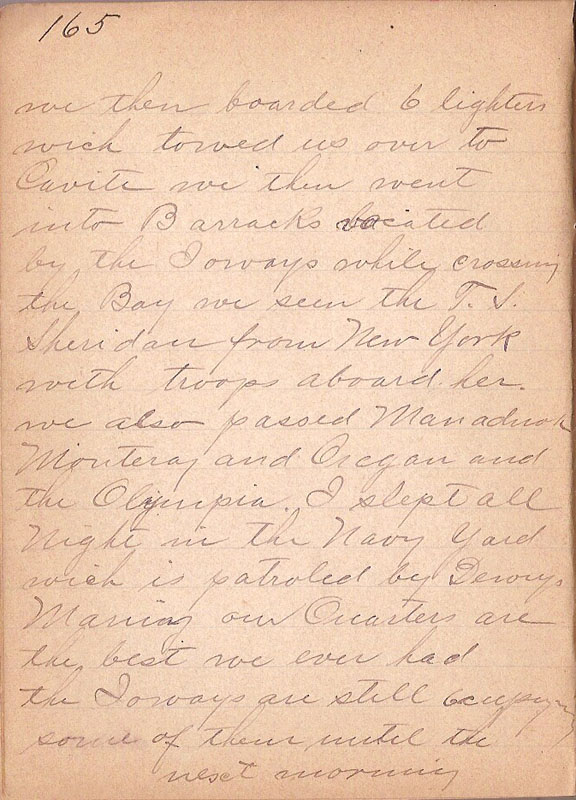 165
we then boarded 6 lighters
wich towed us over to
Cavite we then went
into Barracks vacated
by the Ioways while crossing
the Bay we seen the T. S.
Sheridan from New York
with troops aboard her.
we also passed Manadnok
Monteray and Oregan and
the Olympia. I slept all
Night in the Navy Yard
wich is patroled by Dewys
Marins our Quarters are
the best we ever had
the Ioways are still ocupying
some of them until the
next morning